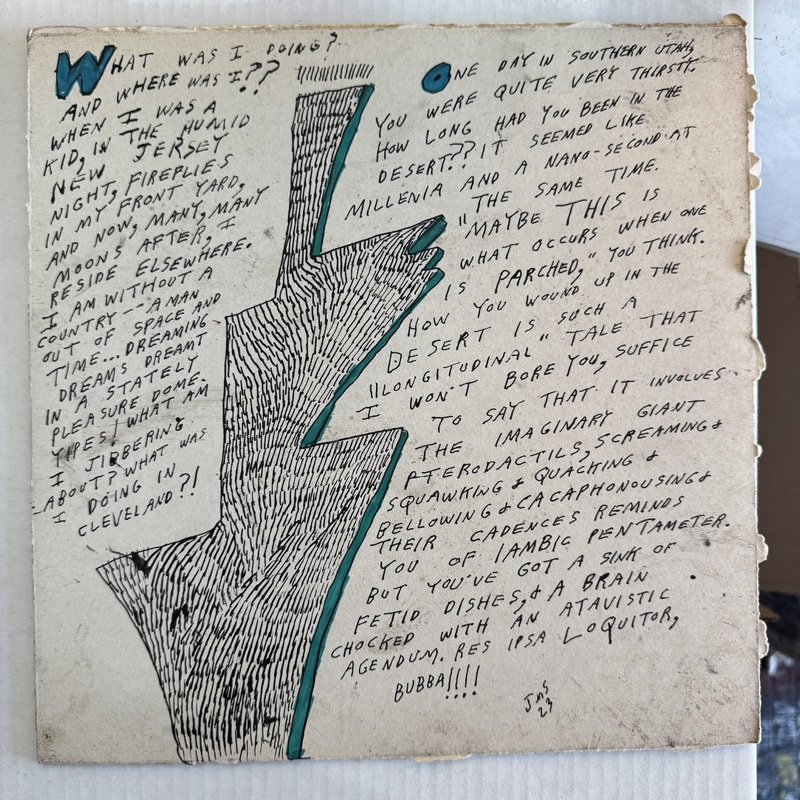 WHAT WAS I DOING?
AND WHERE WAS I??
WHEN I WAS A
KID, IN THE HUMID
NEW JERSEY
NIGHT, FIREFLIES
IN MY FRONT YARD,
AND NOW, MANY, MANY
MOONS AFTER, I
RESIDE ELSEWHERE.
I AM WITHOUT A
COUNTRY -- A MAN
OUT OF SPACE AND
TIME... DREAMING
DREAMS DREAMT
IN A STATELY
PLEASURE DOME.
YIPES! WHAT AM
I JIBBERING
ABOUT? WHAT WAS
I DOING IN
CLEVELAND?!
ONE DAY IN SOUTHERN UTAH,
YOU WERE QUITE VERY THIRSTY.
HOW LONG HAD YOU BEEN IN THE
DESERT?? IT SEEMED LIKE
MILLENIA AND A NANO-SECOND AT
"THE SAME TIME.
MAYBE THIS IS
WHAT OCCURS WHEN ONE
IS PARCHED," YOU THINK.
HOW YOU WOUND UP IN THE
DESERT IS SUCH A
"LONGITUDINAL" TALE THAT
I WON'T BORE YOU, SUFFICE
TO SAY THAT IT INVOLVES
THE IMAGINARY GIANT
PTERODACTILS, SCREAMING &
SQUAWKING & QUACKING &
BELLOWING & CACAPHONOUSING &
THEIR CADENCES REMINDS
YOU OF IAMBIC PENTAMETER.
BUT YOU'VE GOT A SINK OF
FETID DISHES, & A BRAIN
CHOCKED WITH AN ATAVISTIC
AGENDUM. RES IPSA LOQUITOR,
BUBBA!!!!
JMS
23